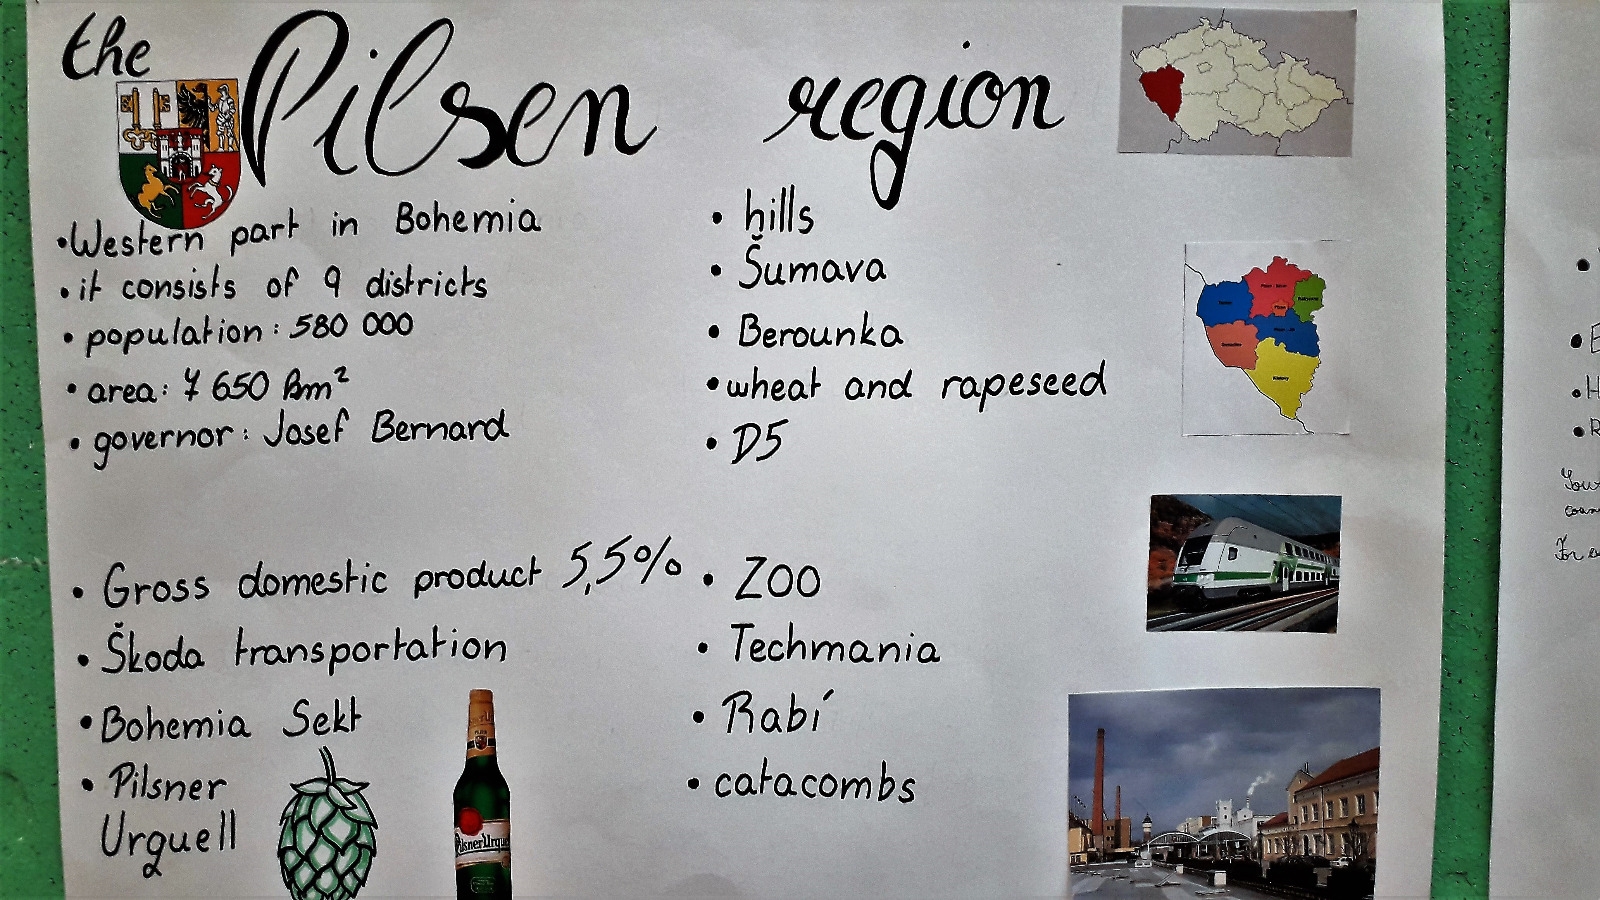 the Pilsen region
• Western part in Bohemia
• it consists of 9 districts
• population: 580 000
• area: 7 650 km²
• governor: Josef Bernard
• hills
• Šumava
• Berounka
• wheat and rapeseed
• D5
• Gross domestic product 5,5%
• Škoda transportation
• Bohemia Sekt
• Pilsner
Urquell
• ZOO
• Techmania
• Rabí
• catacombs